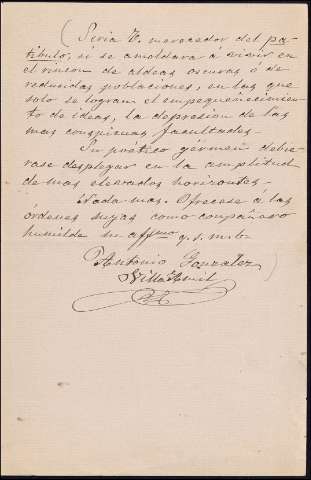 (Seria V. merecedor del pa-
tíbulo, si se amoldara á vivir en
el rincon de aldeas oscuras ó de
reducidas poblaciones, en las que
solo se logran el empequeñecimien-
to de ideas, la depresion de las
mas conspicuas facultades.-
Su poético gérmen debie-
rase desplegar en la amplitud
de mas elevados horizontes.-
Nada mas. Ofrecese á las
órdenes suyas como compañero
humilde su affmo q. s. m. b.
Antonio Gonzalez)
Villa-Amil